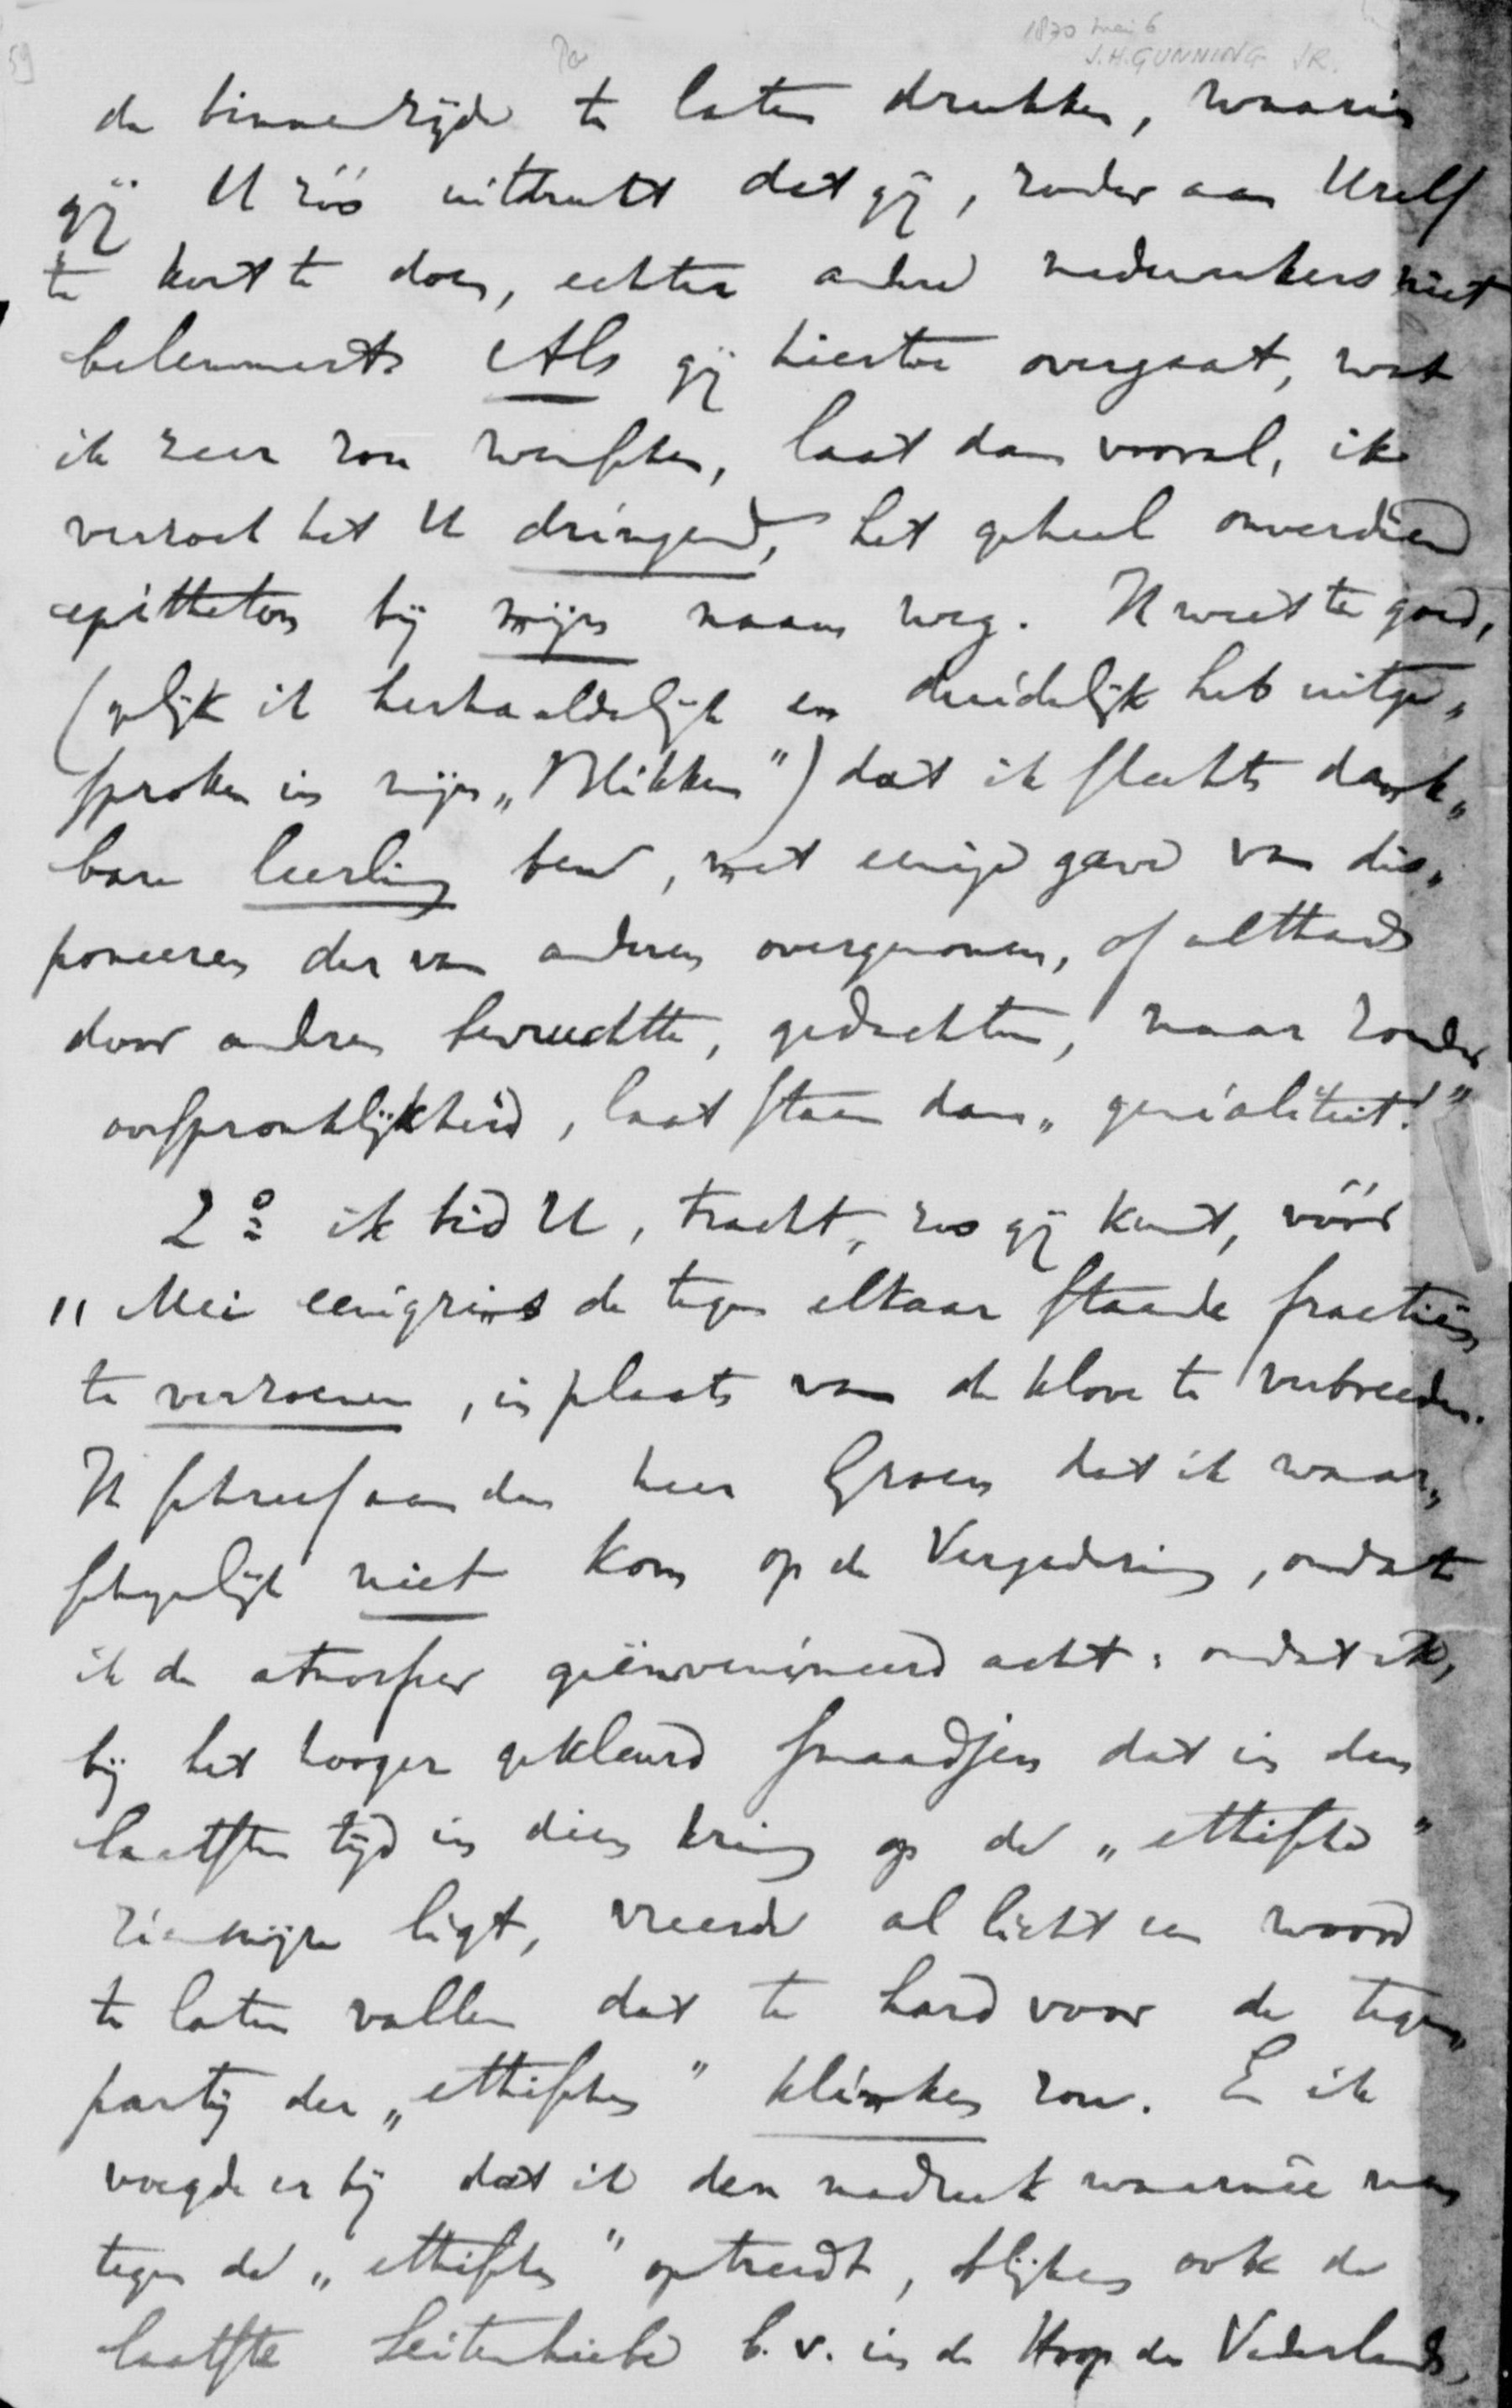 59
1870 mei 6
J.H. GUNNING JR.
de binnenzijde te laten drukken, waarin
gij U zóó uitdrukt dat gij, zonder aan Uzelf
te kort te doen, echter andere medewerkers niet
belemmert. Als gij hiertoe overgaat, wat
ik zeer zou wenschen, laat dan vooral, ik
verzoek het U dringend, het geheel onverdiend
epitheton bij mijn naam weg. U weet te goed,
(gelijk ik herhaaldelijk en duidelijk heb uitge„
sproken in mijn „Blikken") dat ik slechts dank„
bare leerling ben, met eenige gave van dis„
poneeren der van anderen overgenomen, of althands
door andren bevruchtte, gedachten, maar zonder
oorspronklijkheid, laat staan dan „genialiteit!"
2o ik bid U, tracht, zoo gij kunt, vóór
11 Mei eenigzins de tegen elkaar staande fractiën
te verzoenen, in plaats van de klove te verbreeden.
Ik schreef aan den heer Groen dat ik waar„
schijnlijk niet kom op de Vergadering, omdat
ik de atmosfeer geënvenimeerd acht: omdat ik,
bij het hooger gekleurd smaadjen dat in den
laatsten tijd in dien kring op de „ethische"
zienswijze ligt, vreesde al licht een woord
te laten vallen dat te hard voor de tegen„
partij der „ethischen" klinken zou. En ik
voegde er bij dat ik den nadruk waarmêe men
tegen de „ethischen" optreedt, blijkens ook de
laatste Seitenhiebe b.v. in de Hoop des Vaderlands,